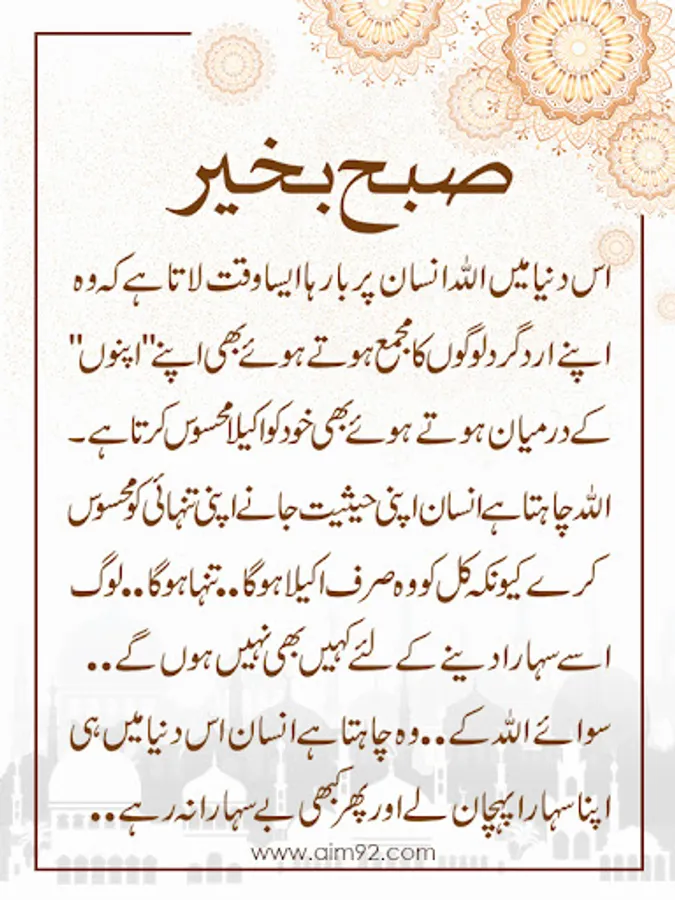 صبح بخیر
اس دنیا میں اللہ انسان پر بارہا ایسا وقت لاتا ہے کہ وہ
اپنے ارد گرد لوگوں کا مجمع ہوتے ہوئے بھی اپنے "اپنوں"
کے درمیان ہوتے ہوئے بھی خود کو اکیلا محسوس کرتا ہے۔
اللہ چاہتا ہے انسان اپنی حیثیت جانے اپنی تنہائی کو محسوس
کرے کیونکہ کل کو وہ صرف اکیلا ہوگا.. تنہا ہوگا.. لوگ
اسے سہارا دینے کے لئے کہیں بھی نہیں ہوں گے..
سوائے اللہ کے.. وہ چاہتا ہے انسان اس دنیا میں ہی
اپنا سہارا پہچان لے اور پھر کبھی بے سہارا نہ رہے..
www.aim92.com